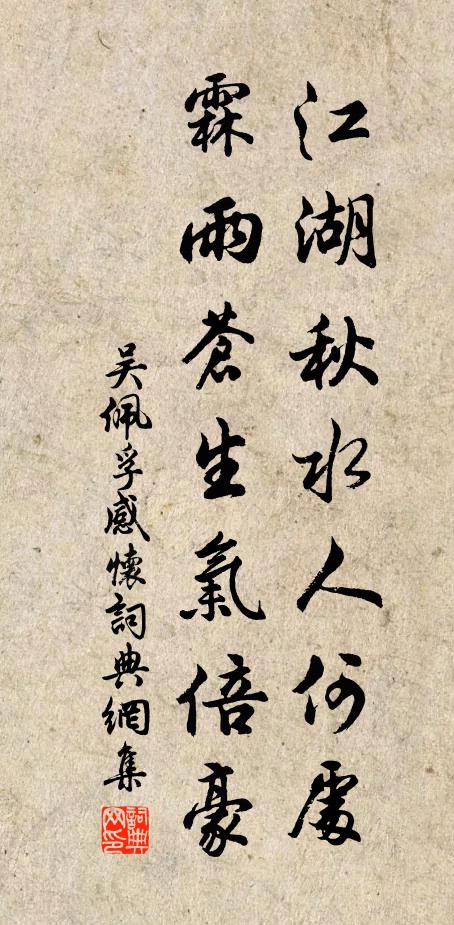 江湖秋水人何處
霖雨蒼生氣倍豪
吴佩孚感懷詞典網集
詞典网印